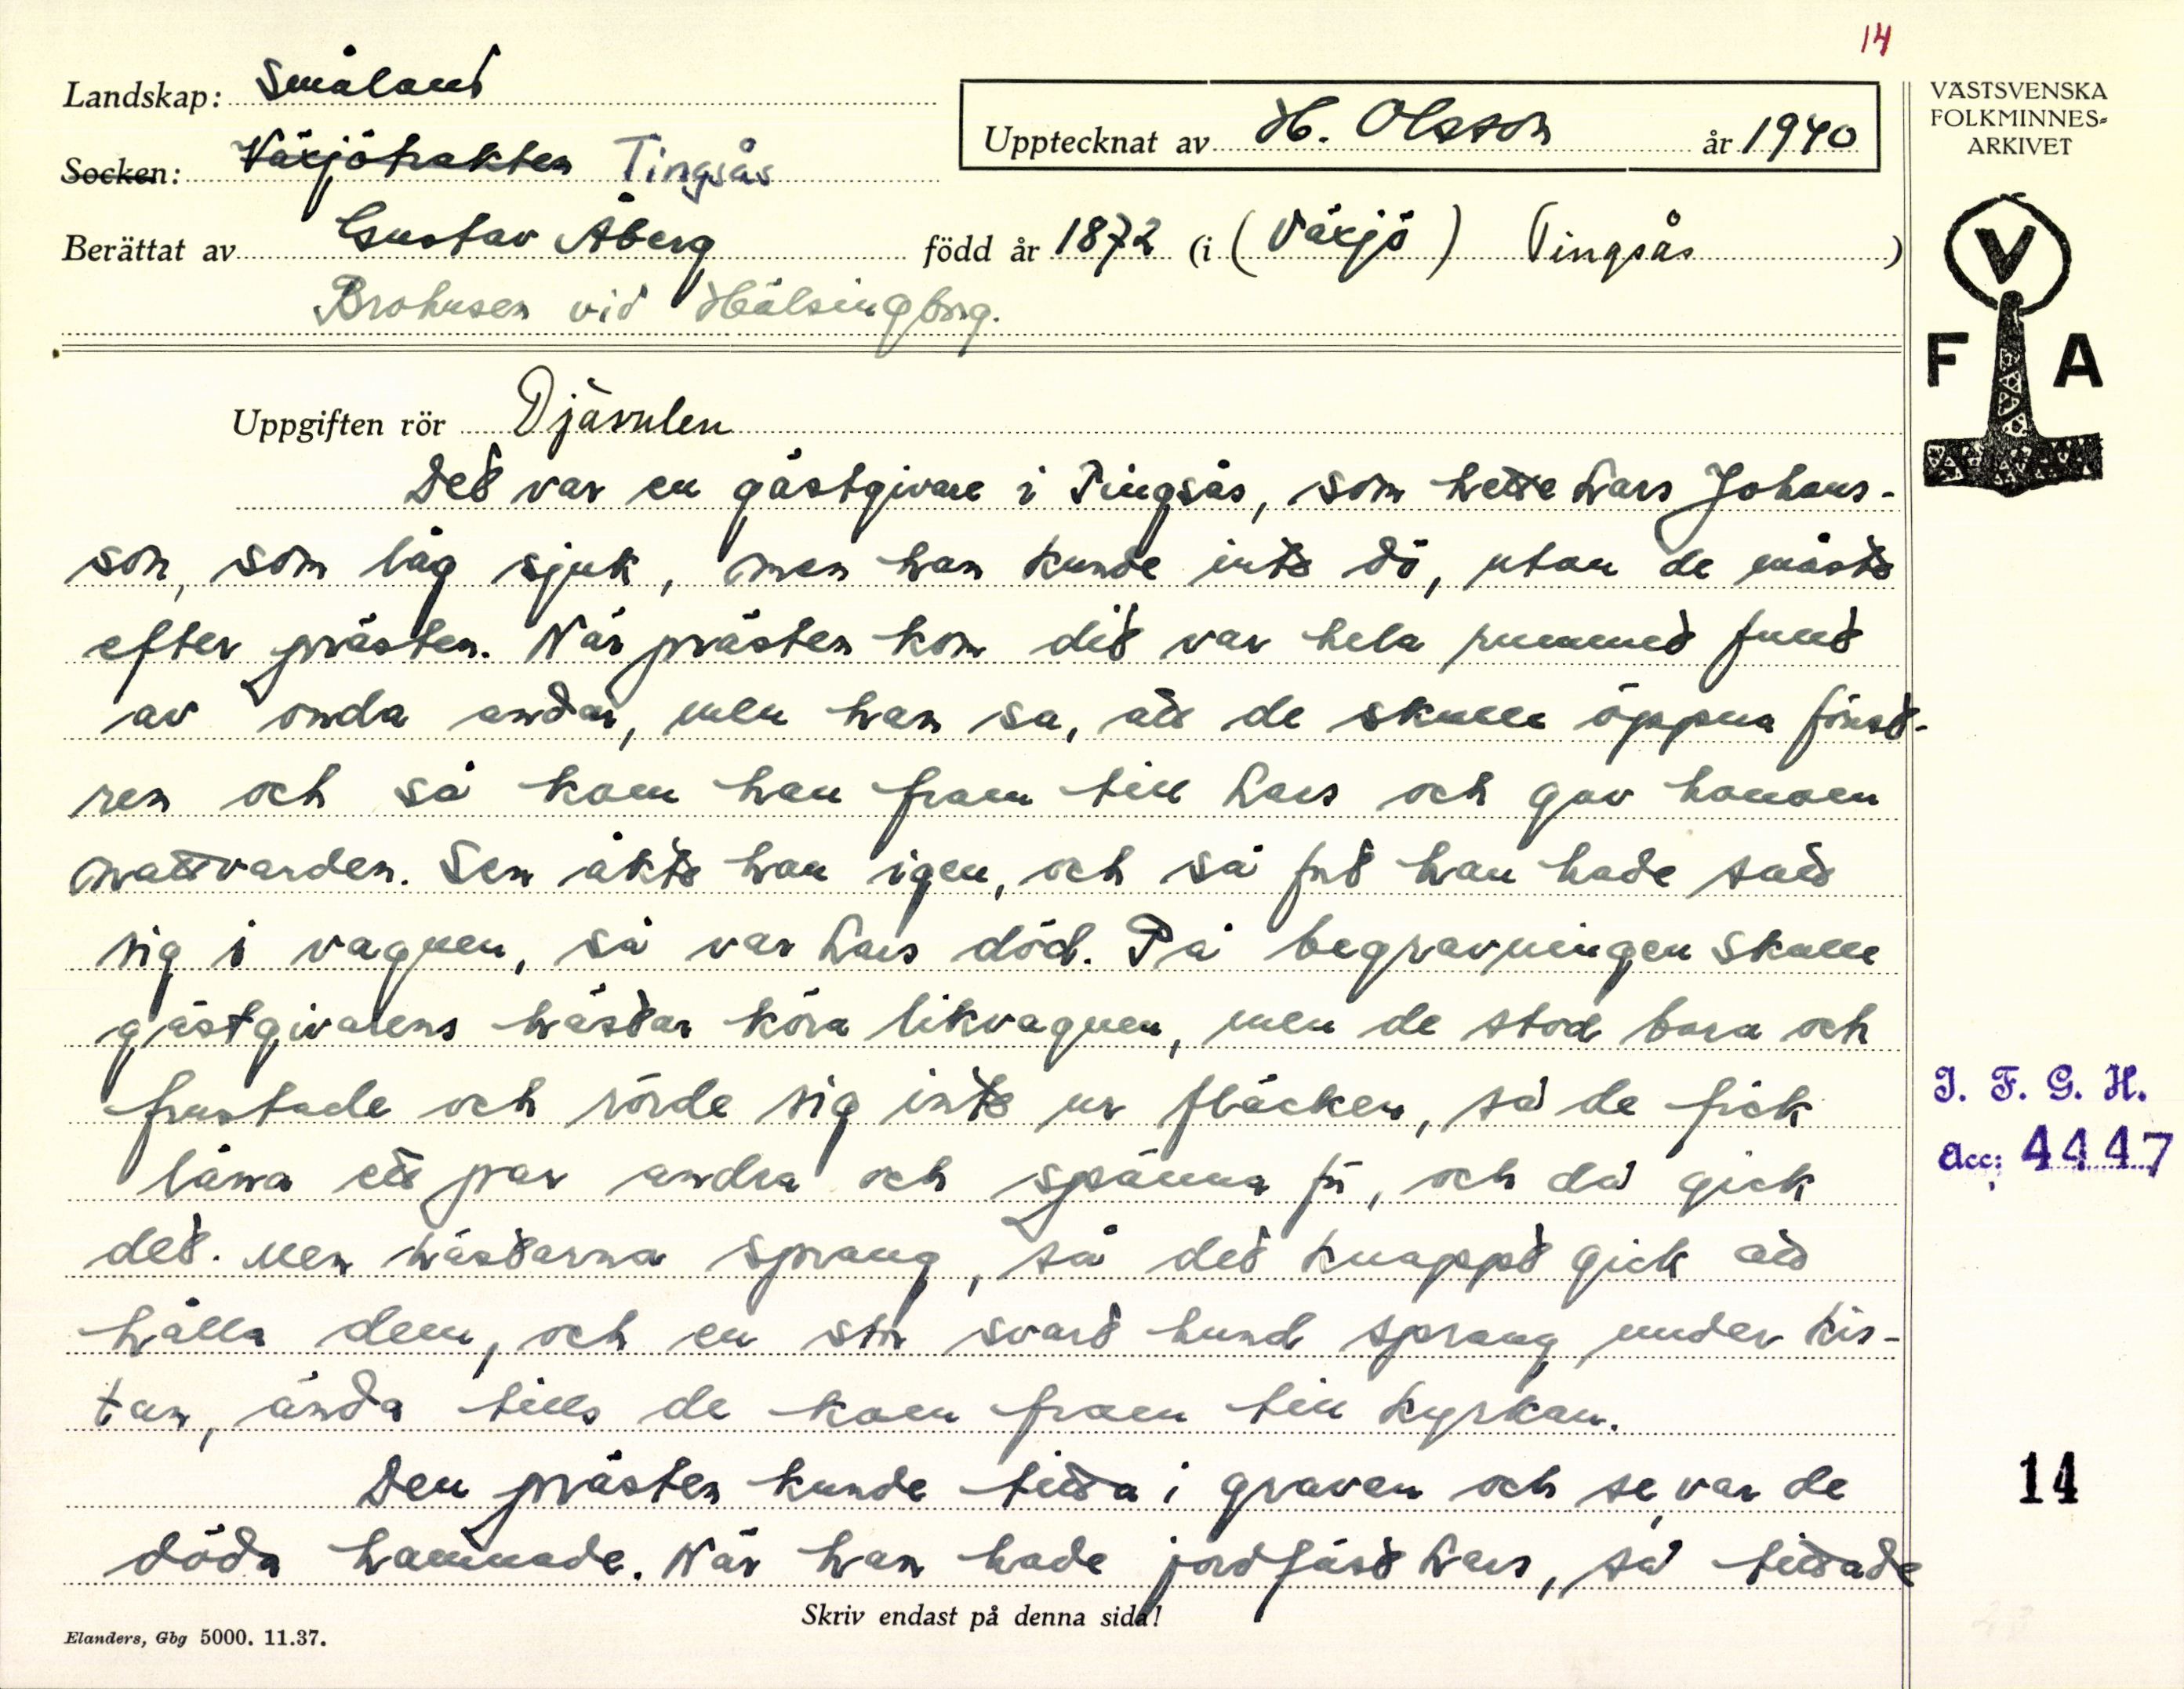 14
Landskap: Småland
Socken: Växjötrakten Tingsås
Upptecknat av H. Olsson år 1940
Berättat av Gustav Åberg född år 1872 (i (Växjö) Tingsås)
Brohusen vid Hälsingborg.
VÄSTSVENSKA
FOLKMINNES-
ARKIVET
V
F A
Uppgiften rör Djävulen
Det var en gästgivare i Tingsås, som hette Lars Johans-
son, som låg sjuk, men han kunde inte dö, utan de måste
efter prästen. När prästen kom dit var hela rummet fullt
av onda andar, men han sa, att de skulle öppna fönst-
ren och så kom han fram till Lars och gav honom
nattvarden. Sen åkte han igen, och så fort han hade satt
sig i vagnen, så var Lars död. På begravningen skulle
gästgivarens hästar köra likvagnen, men de stod bara och
frustade och rörde sig inte ur fläcken, så de fick
låna ett par andra och spänna för, och då gick
det. Men hästarna sprang, så det knappt gick att
hålla dem, och en stor svart hund sprang under kis-
tan, ända tills de kom fram till kyrkan.
Den prästen kunde titta i graven och se, var de
döda hamnade. När han hade jordfäst Lars, så tittade
I. F. G. H.
Acc: 4447
14
Skriv endast på denna sida!
Elanders, Gbg 5000. 11.37.